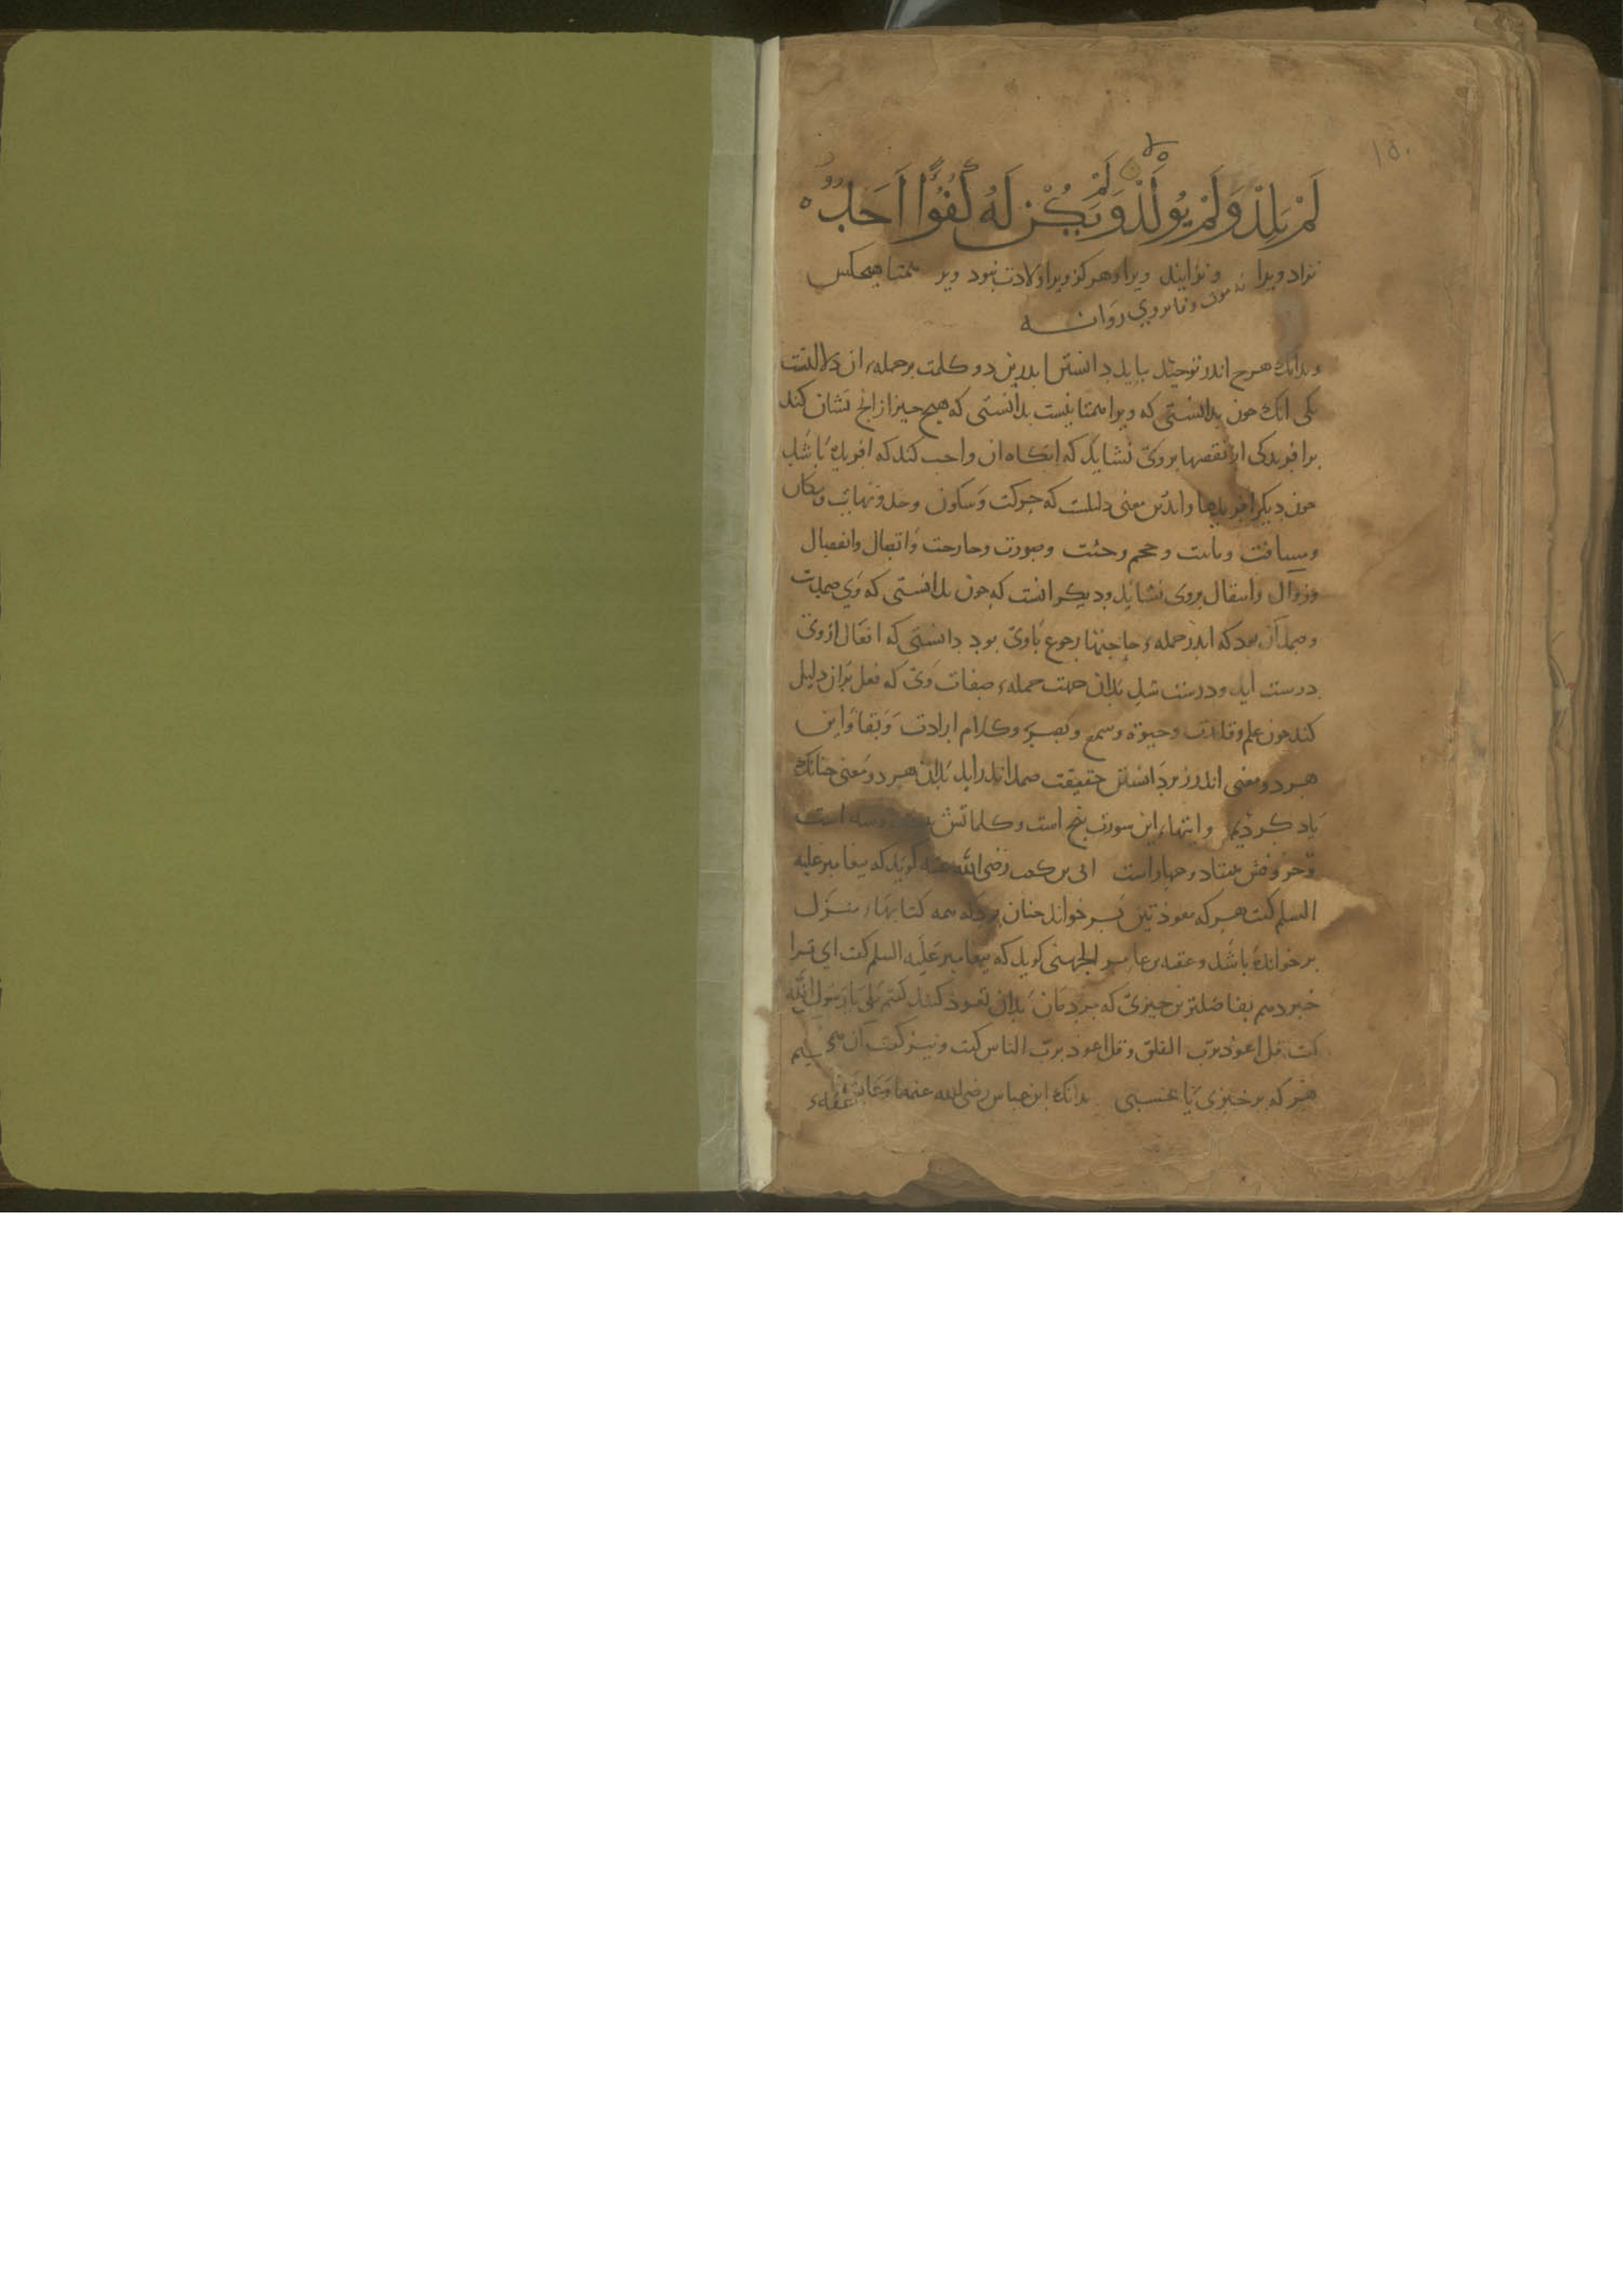 ١٥٠
لَمْ يَلِدْ وَلَمْ يُولَدْ وَلَمْ يَكُنْ لَهُ كُفُوًا اَحَدٌ
نزاد ویرا و نزایند ویرا و هرکز ویرا ولادت نبود ویر همتا هیچکس
نه موت وفا بروی روا نه
وبدانک هرج اندر توحید باید دانستن ابدرین دو کلمت برجمله ان دلالتست
یکی انک جون بدانستی که ویرا همتا نیست بدانستی که هیچ جیز از انج نشان کند
برافریدکی از نقصها بروی نشاید که انکاه ان واجب کند که افریده باشد
جون دیکر افریدها واندرین معنی دلیلست که حرکت وسکون وحد ونهایت ومکان
ومسافت وماست وحجم وجثت وصورت وجارحت واتصال وانفصال
وزوال وانتقال بروی نشاید ودیکر انست که جون بدانستی که وی صمدست
وصمد آن بود که اندر جمله حاجتها رجوع باوی بود دانستی که افعال ازوی
درست اید ودرست شد بدان جهت جمله صفات وی که فعل بران دلیل
کند جون علم وقدرت وحیوة وسمع وبصر وکلام ارادت وبقا واین
هردو معنی اندرز بردانستن حقیقت صمد اندراید بدان هردو معنی جنانک
یاد کردیم وایتهاء این سورت بنج است وکلماتش بیست وسه است
وحروفش هفتاد وجهاراست ابی بن کعب رضی الله عنه کوید که بیغامبر علیه
السلم کفت هرکه معوذتین بر خواند جنان بود که همه کتابهاء منزل
برخوانده باشد وعقبه بن عامر الجهنی کوید که بیغامبر علیه السلم کفت ای ترا
خبر دهم بفاضلترین جیزی که مردمان بدان تعوذ کنند کفتم بلی یا رسول الله
کفت قل اعوذ برب الفلق وقل اعوذ برب الناس کفت ونیز کفت آن
هرکه برخیزی یا بخسبی بدانک ابن عباس رضی الله عنهما وعایشه